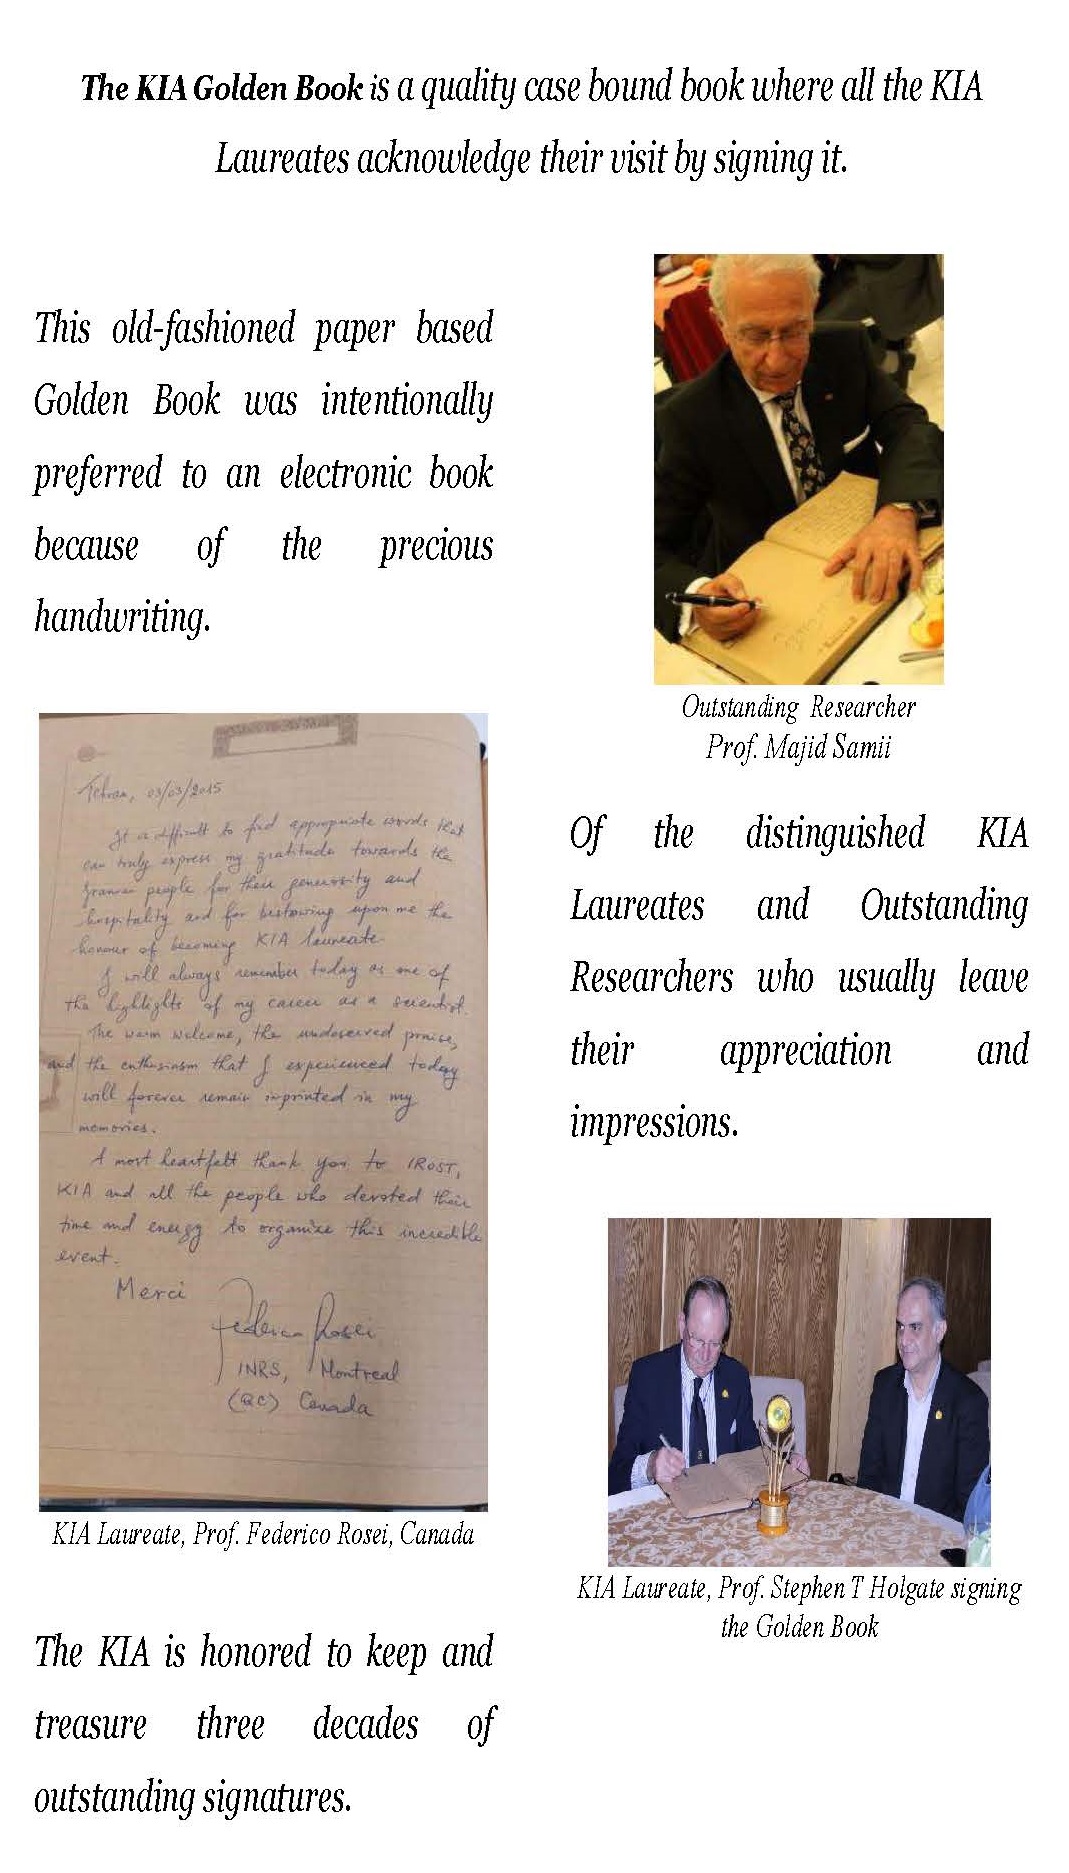 The KIA Golden Book is a quality case bound book where all the KIA
Laureates acknowledge their visit by signing it.
This old-fashioned paper based
Golden Book was intentionally
preferred to an electronic book
because of the precious
handwriting.
Tehran, 03/03/2015
It is difficult to find appropriate words that
can truly express my gratitude towards the
Iranian people for their generosity and
hospitality and for bestowing upon me the
honour of becoming KIA laureate.
I will always remember today as one of
the highlights of my career as a scientist.
The warm welcome, the undeserved praise,
and the enthusiasm that I experienced today
will forever remain imprinted in my
memories.
A most heartfelt thank you to IROST,
KIA and all the people who devoted their
time and energy to organize this incredible
event.
Merci
Federico Rosei
INRS, Montreal
(QC) Canada
KIA Laureate, Prof. Federico Rosei, Canada
The KIA is honored to keep and
treasure three decades of
outstanding signatures.
Outstanding Researcher
Prof. Majid Samii
Of the distinguished KIA
Laureates and Outstanding
Researchers who usually leave
their appreciation and
impressions.
KIA Laureate, Prof. Stephen T Holgate signing
the Golden Book